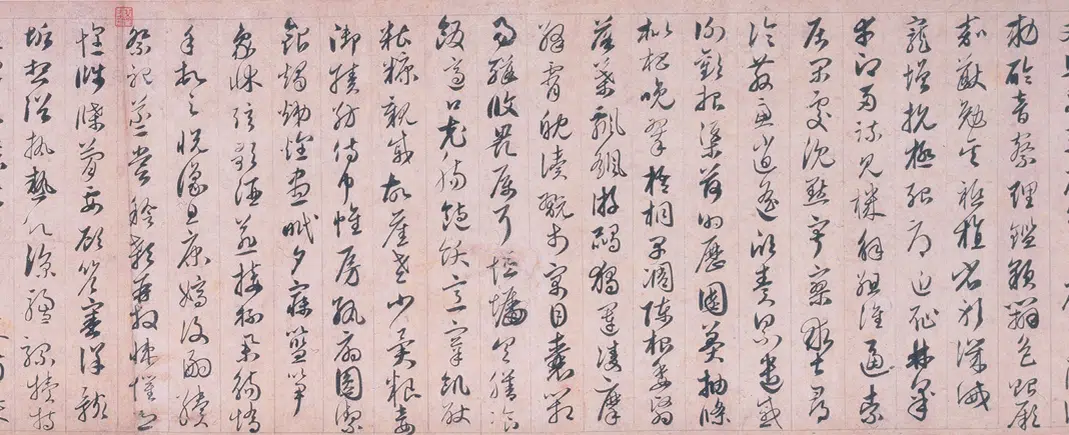 敕聆音察理鑑貌辨色貽厥
嘉猷勉其祗植省躬譏誡
寵增抗極殆辱近恥林皋
幸即兩疏見機解組誰逼索
居閑處沉默寂寥求古尋
論散慮逍遙欣奏累遣慼
謝歡招渠荷的歷園莽抽條
枇杷晚翠梧桐早凋陳根委翳
落葉飄颻游鵾獨運凌摩
絳霄耽讀玩市寓目囊箱
易輶攸畏屬耳垣牆具膳飡
飯適口充腸飽飫烹宰飢厭
糟糠親戚故舊老少異糧妾
御績紡侍巾帷房紈扇圓潔
銀燭煒煌晝眠夕寐藍筍
象床弦歌酒宴接杯舉觴矯
手頓足悅豫且康嫡後嗣續
祭祀蒸嘗稽顙再拜悚懼恐
惶牋牒簡要顧答審詳骸
垢想浴執熱願涼驢騾犢特